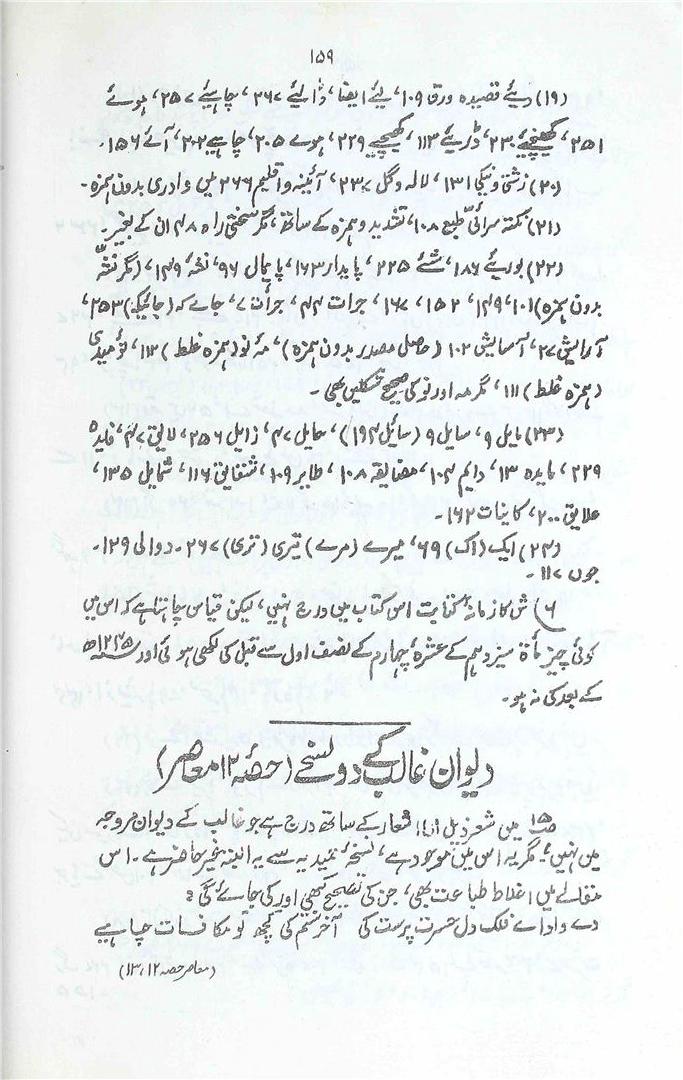 ۱۵۹
(۱۹) دیئے قصیدہ ورق ۱۰۹، لیے ایضا، ڈالیئے ۲۶۷، چاہیئے ۲۵۷، ہوئے
۲۵۱، کھینچیے ۲۳۰، ڈریئے ۱۱۳، کھیچیے ۲۲۹، ہوے ۲۰۵، چاہیے ۲۰۲، آئے ۱۵۶۔
(۲۰) زشتی و نیکی ۱۳۱، لالہ و گل ۲۳۷، آئینہ و اقلیم ۲۶۶ میں وادری بدون ہمزہ۔
(۲۱) نکتہ سرائیِ طبع ۱۰۸، تشدید و ہمزہ کے ساتھ، مگر سختی راہ ۴۸ ان کے بغیر۔
(۲۲) بوریئے ۱۸۶، شئے ۲۲۵، پایدار ۱۶۳، پایمال ۹۶، نشۂ ۱۴۹، (مگر نشّہ
بدون ہمزہ) ۱۰۱، ۱۴۹، ۱۵۲، ۱۶۷، جرات ۴۴، جرأت ۷، جاے کہ (جائیکہ) ۲۵۳،
آرایش ۲۷، آسایش ۱۰۲ (حاصل مصدر بدون ہمزہ)، مۂ نو (ہمزہ غلط) ۱۱۳، نؤمیدی
(ہمزہ غلط) ۱۱۱، مگر مہ اور نو کی صحیح شکلیں بھی۔
(۲۳) مایل ۹، سایل ۹ (سائل ۱۹۴)، حایل ۴۷، زایل ۲۵۶، لایق ۴۷، فایدہ
۲۲۹، مایدہ ۱۳، دایم ۱۰۴، مضایقہ ۱۰۸، طایر ۱۰۹، شقایق ۱۱۶، شمایل ۱۳۵،
علایق ۲۰۰، کاینات ۱۶۲۔
(۲۴) ایک (اک) ۶۹، میرے (مرے) تیری (تری) ۲۶۷۔ دوالی ۱۲۹۔
جوں ۱۱۷۔
۶) ش کا زمانۂ کتابت اس کتاب میں درج نہیں، لیکن قیاس چاہتا ہے کہ اس میں
کوئی چیز مأۃ سیزدہم کے عشرۂ چہارم کے نصف اول سے قبل کی لکھی ہوئی اور ۱۲۴۵ھ
کے بعد کی نہ ہو۔
دیوان غالب کے دو نسخے (حصۂ ۱۲ معاصر)
ص۱۵ میں شعر ذیل ان اشعار کے ساتھ درج ہے جو غالب کے دیوان مروجہ
میں نہیں؛ مگر یہ اس میں موجود ہے، نسخۂ حمیدیہ سے یہ البتہ غیر حاضر ہے۔ اس
مقالے میں اغلاط طباعت بھی، جن کی تصحیح کبھی اور کی جائے گی:
دے داد اے فلک دل حسرت پرست کی آخر ستم کی کچھ تو مکافات چاہیے
(معاصر حصہ ۱۲، ۱۳)